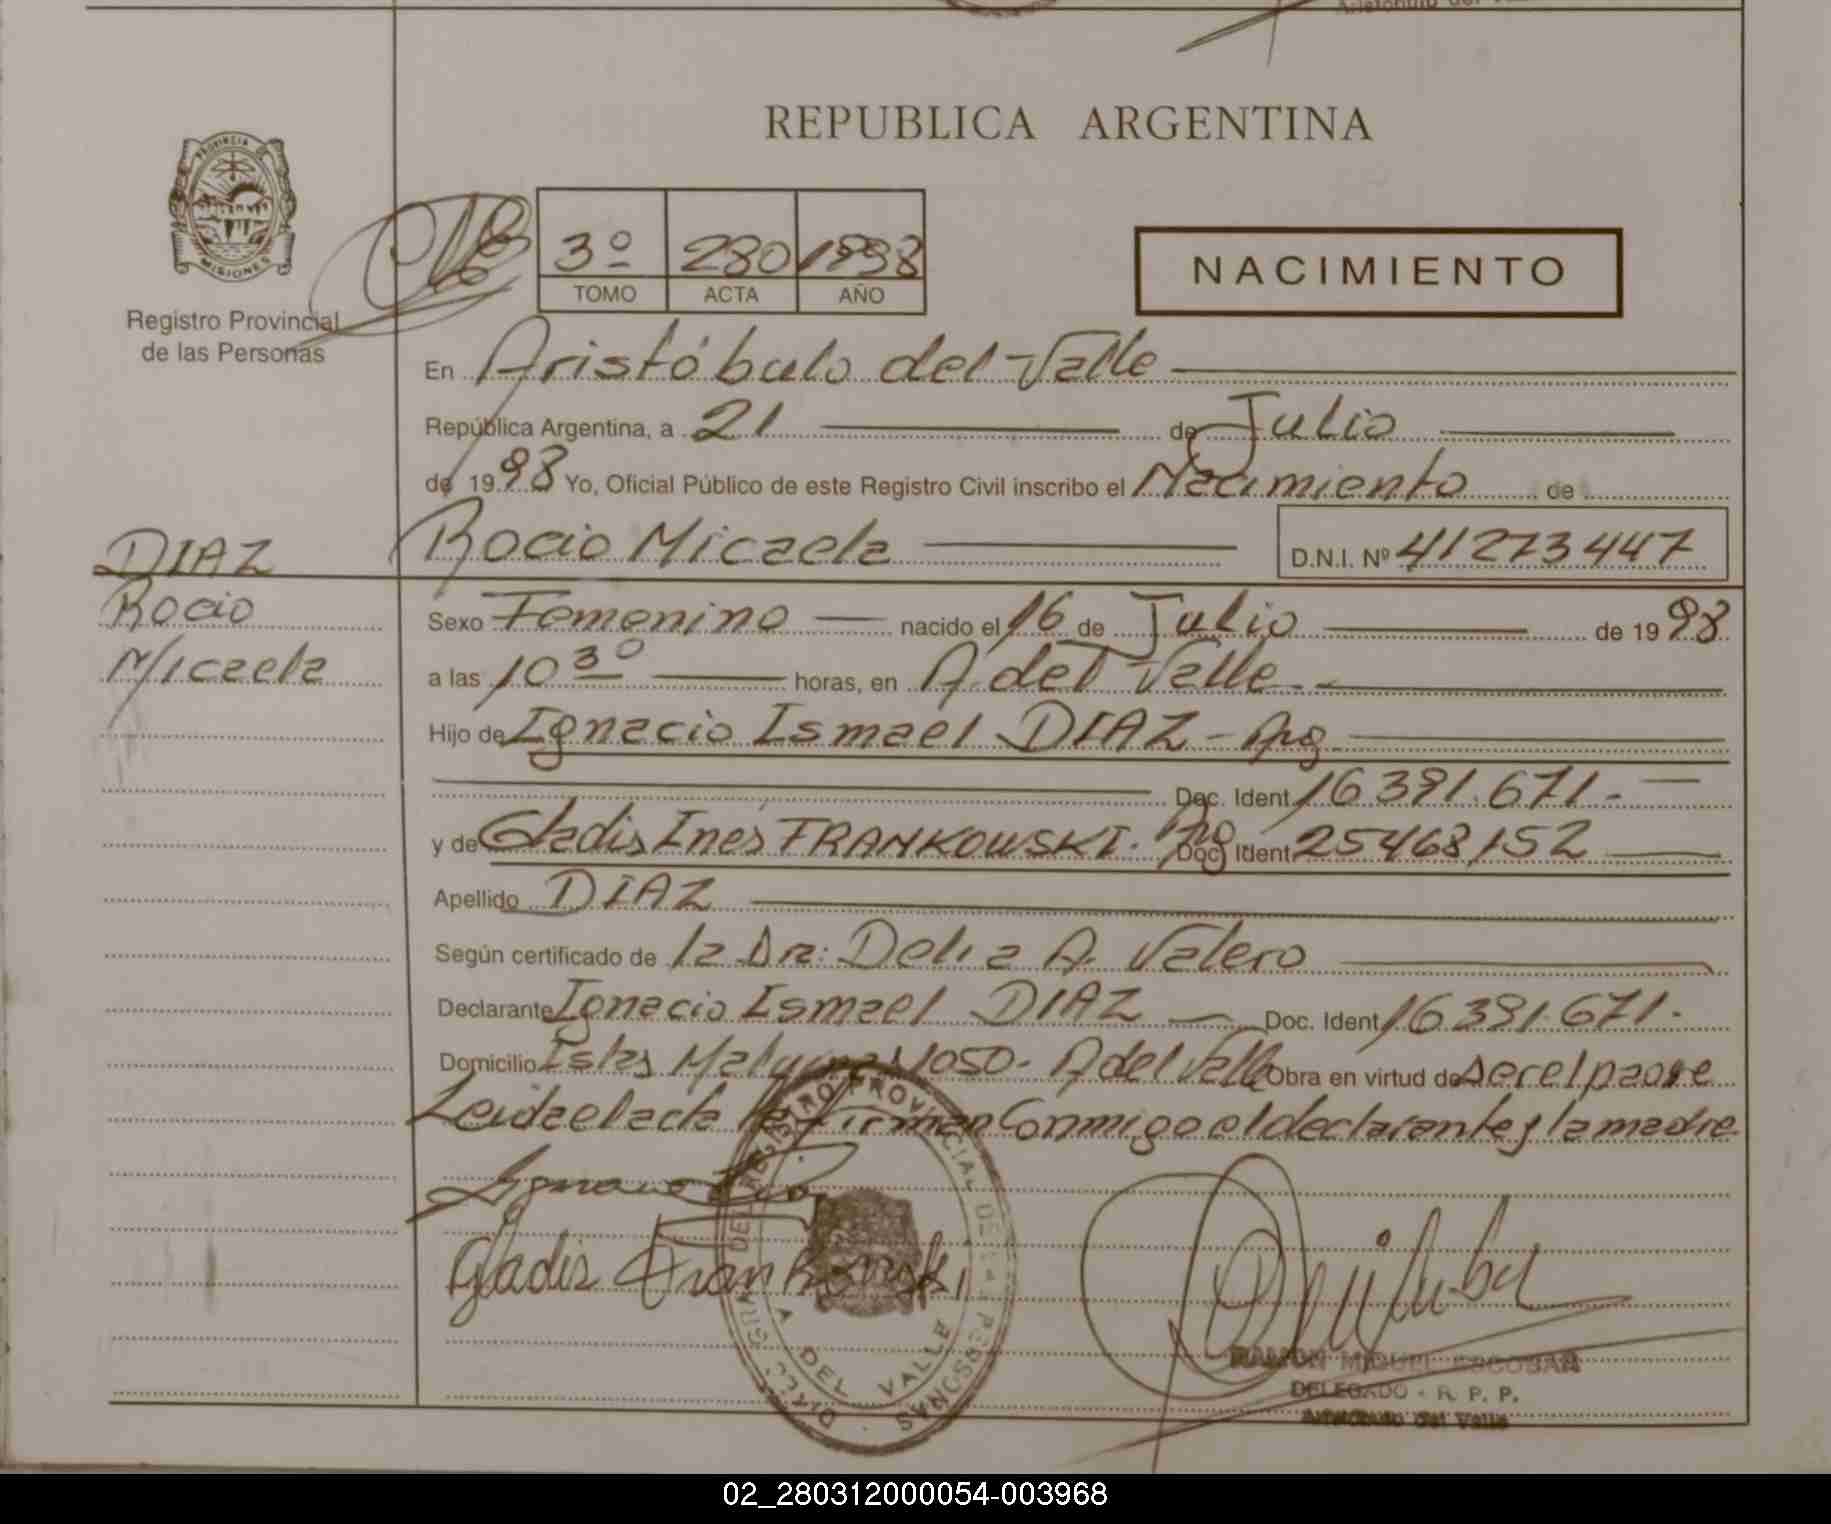 REPUBLICA ARGENTINA
PROVINCIA
MISIONES
Registro Provincial
de las Personas
3º 280 1998
TOMO ACTA AÑO
NACIMIENTO
En Aristóbulo del Valle
República Argentina, a 21 de Julio
de 1998 Yo, Oficial Público de este Registro Civil inscribo el Nacimiento de
Rocio Micaela D.N.I. Nº 41273447
DIAZ
Rocio
Micaela
Sexo Femenino nacido el 16 de Julio de 1998
a las 10 30 horas, en A. del Valle
Hijo de Ignacio Ismael DIAZ - Arg
Doc. Ident 16391.671.
y de Gladis Inés FRANKOWSKI. Arg Doc. Ident 25468152
Apellido DIAZ
Según certificado de la Dra: Delia A. Valero
Declarante Ignacio Ismael DIAZ Doc. Ident 16391.671.
Domicilio Islas Malvinas 1050 - A del Valle Obra en virtud de ser el padre
Leida el acta la firman conmigo el declarante y la madre
Gladis Frankowski
REGISTRO PROVINCIAL DE LAS PERSONAS
A DEL VALLE
RAMON MIGUEL ESCOBAR
DELEGADO - R. P. P.
Aristóbulo del Valle
02_280312000054-003968